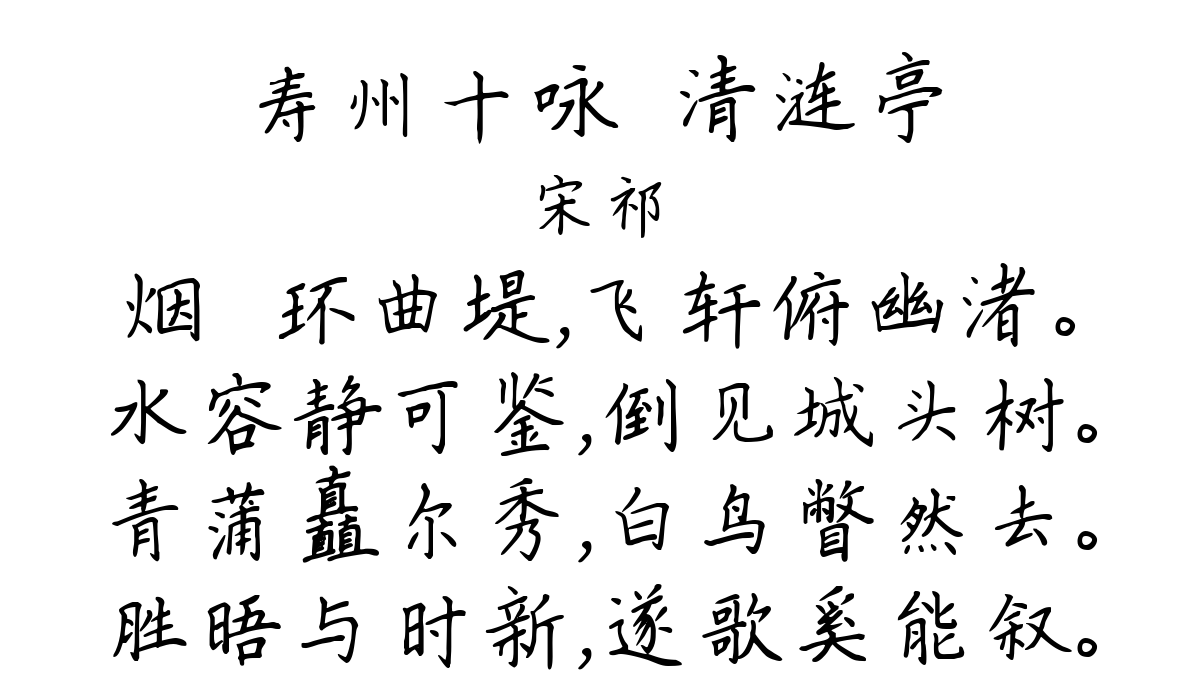 寿州十咏 清涟亭
宋祁
烟 环曲堤,飞轩俯幽渚。
水容静可鉴,倒见城头树。
青蒲矗尔秀,白鸟瞥然去。
胜晤与时新,遂歌奚能叙。